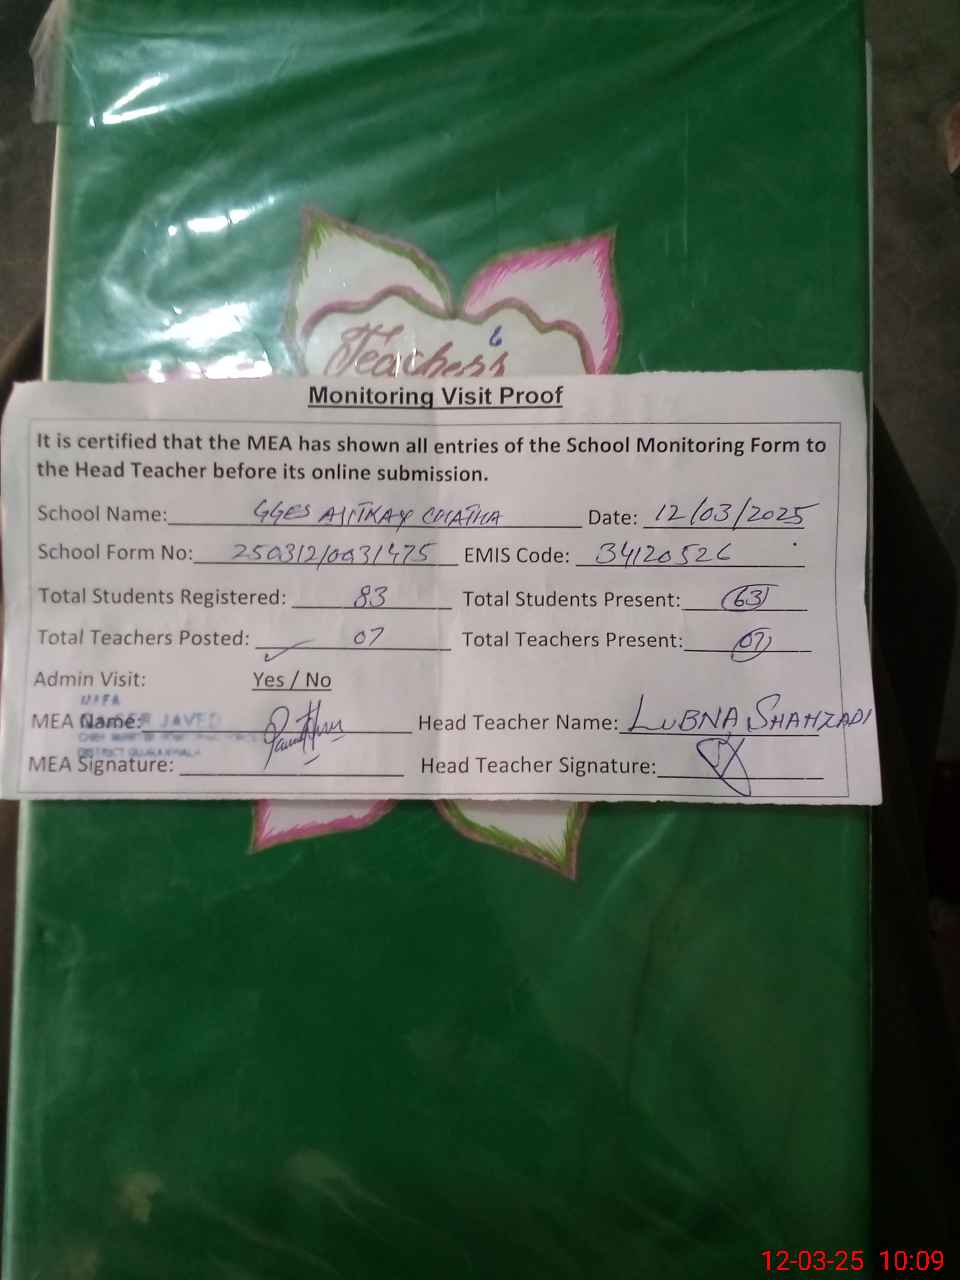 Teacher's
6
Monitoring Visit Proof
It is certified that the MEA has shown all entries of the School Monitoring Form to
the Head Teacher before its online submission.
School Name: GGES CHATHA Date: 12/03/2025
School Form No: 250312/0031475 EMIS Code: 34120526
Total Students Registered: 83 Total Students Present: 63
Total Teachers Posted: 07 Total Teachers Present: 07
Admin Visit: Yes / No
MEA Name: JAVED Head Teacher Name: LUBNA SHAHZADI
MEA Signature: Head Teacher Signature:
12-03-25 10:09